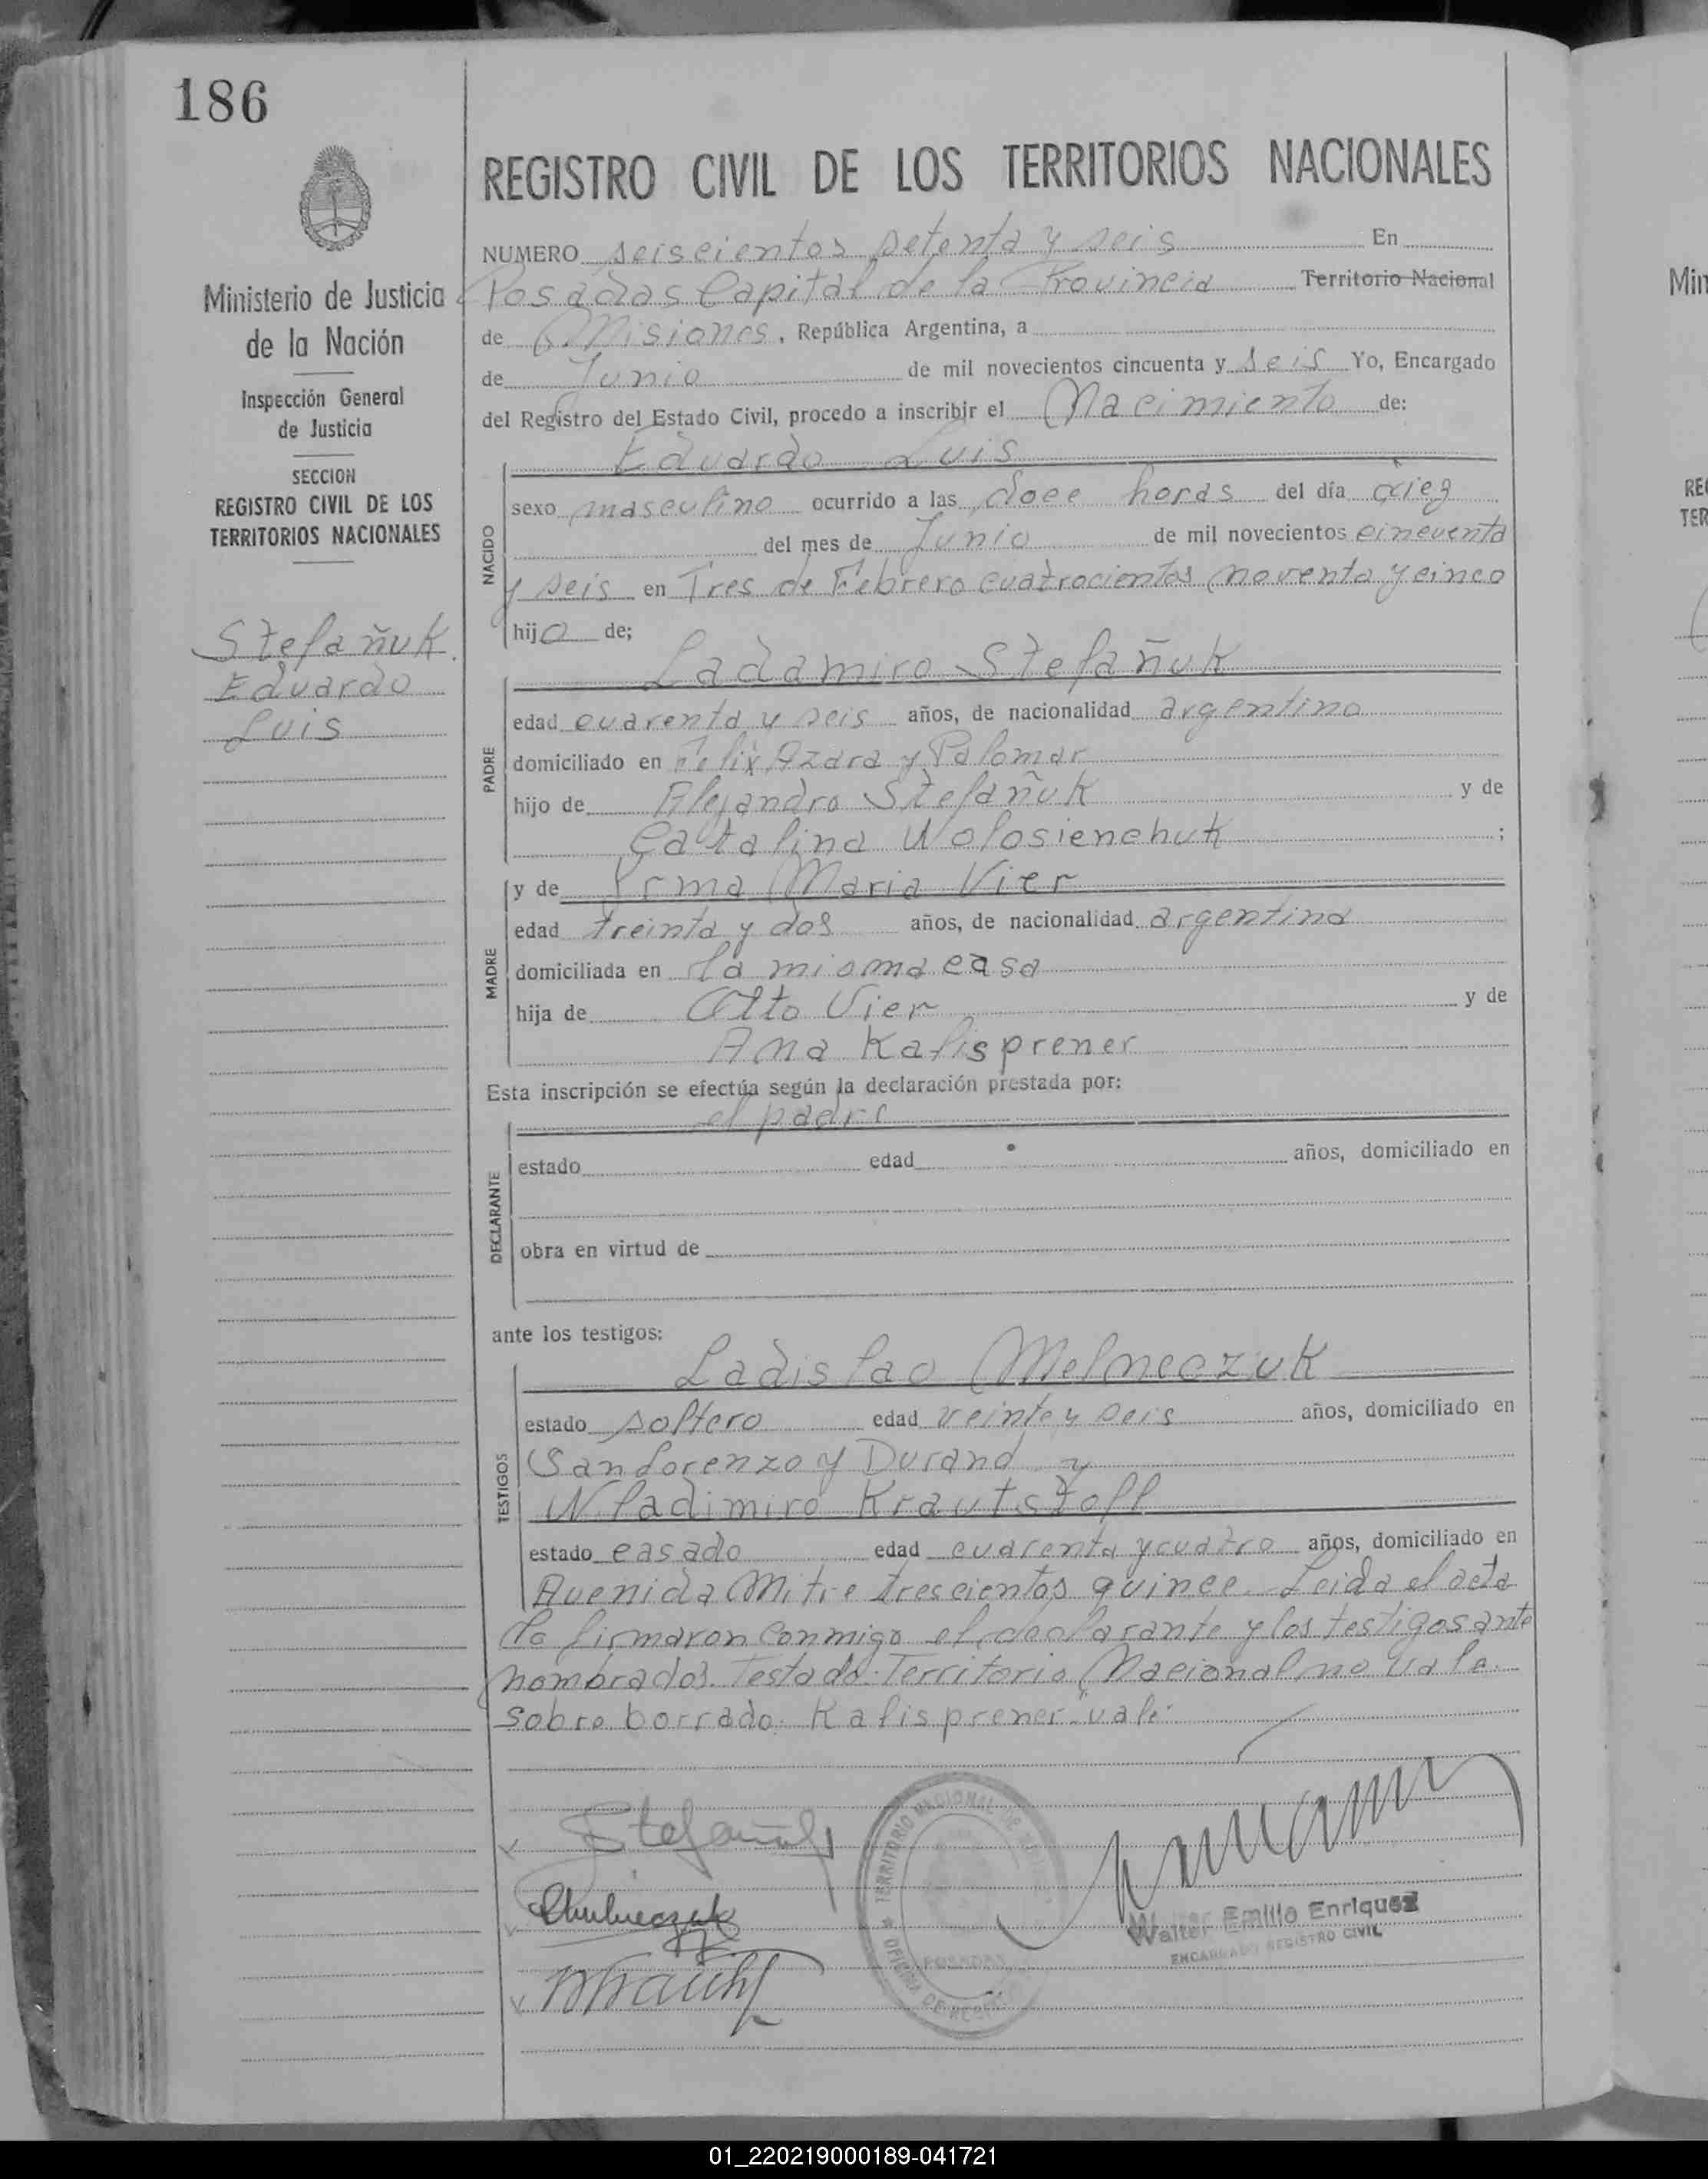 186
REGISTRO CIVIL DE LOS TERRITORIOS NACIONALES
Ministerio de Justicia
de la Nación
Inspección General
de Justicia
SECCION
REGISTRO CIVIL DE LOS
TERRITORIOS NACIONALES
Stefañuk
Eduardo
Luis
NUMERO seiscientos setenta y seis En
Posadas Capital de la Provincia Territorio Nacional
de Misiones, República Argentina, a
de Junio de mil novecientos cincuenta y seis Yo, Encargado
del Registro del Estado Civil, procedo a inscribir el Nacimiento de:
Eduardo Luis
NACIDO
sexo masculino ocurrido a las doce horas del día diez
del mes de Junio de mil novecientos cincuenta
y seis en Tres de Febrero cuatrocientos noventa y cinco
hijo de;
Ladamiro Stefañuk
PADRE
edad cuarenta y seis años, de nacionalidad argentino
domiciliado en Felix Azara y Palomar
hijo de Alejandro Stefañuk y de
Catalina Wolosienchuk ;
y de Irma Maria Vier
MADRE
edad treinta y dos años, de nacionalidad argentina
domiciliada en la misma casa
hija de Otto Vier y de
Ana Kalisprener
Esta inscripción se efectúa según la declaración prestada por:
el padre
DECLARANTE
estado edad años, domiciliado en
obra en virtud de
ante los testigos:
Ladislao Melneczuk
TESTIGOS
estado soltero edad veinte y seis años, domiciliado en
San Lorenzo y Durand y
Wladimiro Krautstofl
estado casado edad cuarenta y cuatro años, domiciliado en
Avenida Mitre trescientos quince. Leida el acta
la firmaron conmigo el declarante y los testigos ante
nombrados. Testado: Territorio Nacional no vale.
Sobre borrado: Kalisprener "vale"
Stefañuk
TERRITORIO NACIONAL DE
POSADAS
OFICINA DE
Walter Emilio Enriquez
ENCARGADO REGISTRO CIVIL
01_220219000189-041721